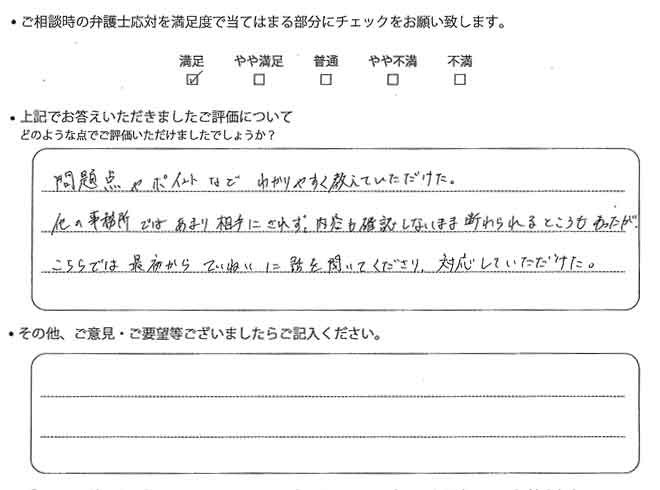 ・ご相談時の弁護士応対を満足度で当てはまる部分にチェックをお願い致します。
満足 やや満足 普通 やや不満 不満
☑ □ □ □ □
・上記でお答えいただきましたご評価について
どのような点でご評価いただけましたでしょうか?
問題点やポイントなど わかりやすく教えていただけた。
他の事務所では あまり相手にされず、内容も確認しないまま断わられるところもあったが、
こちらでは最初から ていねいに話を聞いてくださり、対応していただけた。
・その他、ご意見・ご要望等ございましたらご記入ください。